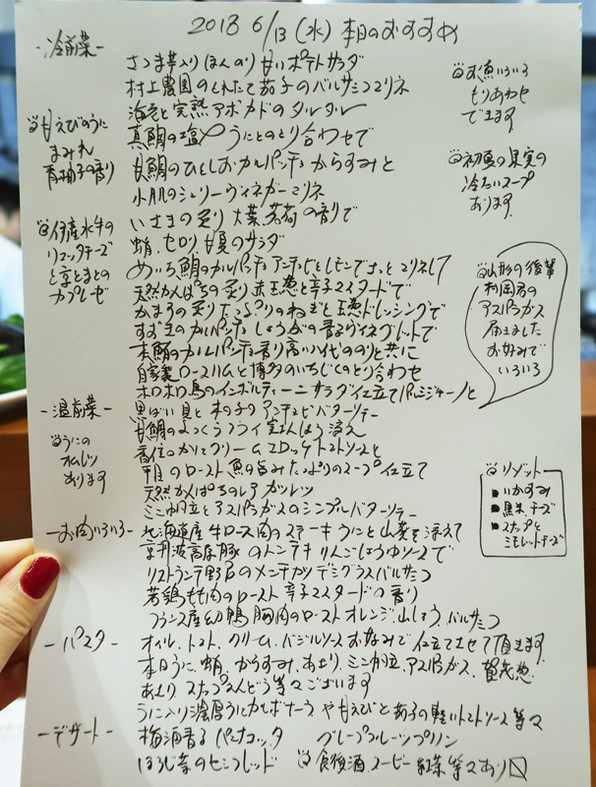 2018 6/13 (水) 本日のおすすめ
-冷前菜-
さつま芋入りほんのり甘いポテトサラダ
村上農園のとれたて茄子のバルサミコマリネ
海老と完熟アボカドのタルタル
真鯛の塩〆うにとのとり合わせで
甘鯛のひとしおカルパッチョからすみと
小肌のシェリーヴィネガーマリネ
いさきの炙り 大葉茗荷の香りで
蛸、セロリ 甘夏のサラダ
めいち鯛のカルパッチョ アンチョビとレモンでさっとマリネして
天然かんぱちの炙り 赤玉葱と辛子マスタードで
かますの炙り たっぷりのねぎと玉葱ドレッシングで
すずきのカルパッチョ しょうがの香るヴィネグレットで
本鮪のカルパッチョ 香り高い八代ののりと共に
自家製ロースハムと博多のいちじくのとり合わせ
ホロホロ鳥のインボルティーニ サラダ仕立て パルミジャーノと
甘えびのうに
まみれ
青柚子の香り
伊産水牛の
リコッタチーズ
と京とまとの
カプレーゼ
お魚いろいろ
もりあわせ
できます
初夏の果実の
冷たいスープ
あります
山形の後輩
村岡君の
アスパラガス
届きました
お好みで
いろいろ
-温前菜-
黒ばい貝と木の子のアンチョビバターソテー
甘鯛のさっくりフライ 実さんしょう添え
香住のかにクリームコロッケ トマトソースと
平目のロースト 魚の旨みたっぷりのスープ仕立て
天然かんぱちのレアカツレツ
ミニ帆立とアスパラガスのシンプルバターソテー
うにの
オムレツ
あります
リゾット
■いかすみ
■黒米、チーズ
■スナップと
ミモレットチーズ
-お肉いろいろ-
北海道産牛ロース肉のステーキ うにと山葵を添えて
京丹波高原豚のトンテキ りんごしょうゆソースで
リストランテ野呂のメンチカツ デミグラスバルサミコ
若鶏もも肉のロースト 辛子マスタードの香り
フランス産幼鴨 胸肉のロースト オレンジ、山しょう、バルサミコ
-パスタ-
オイル、トマト、クリーム、バジルソース お好みで仕立てさせて頂きます
本日うに、蛸、からすみ、あさり、ミニ帆立、アスパラガス、賀茂茄
あさり スナップえんどう等々ございます
うに入り濃厚うにカルボナーラ や 甘えびと茄子の軽いトマトソース 等々
-デザート-
梅酒香るパンナコッタ
グレープフルーツプリン
ほうじ茶のセミフレッド
食後酒、コーヒー 紅茶 等々あり〼